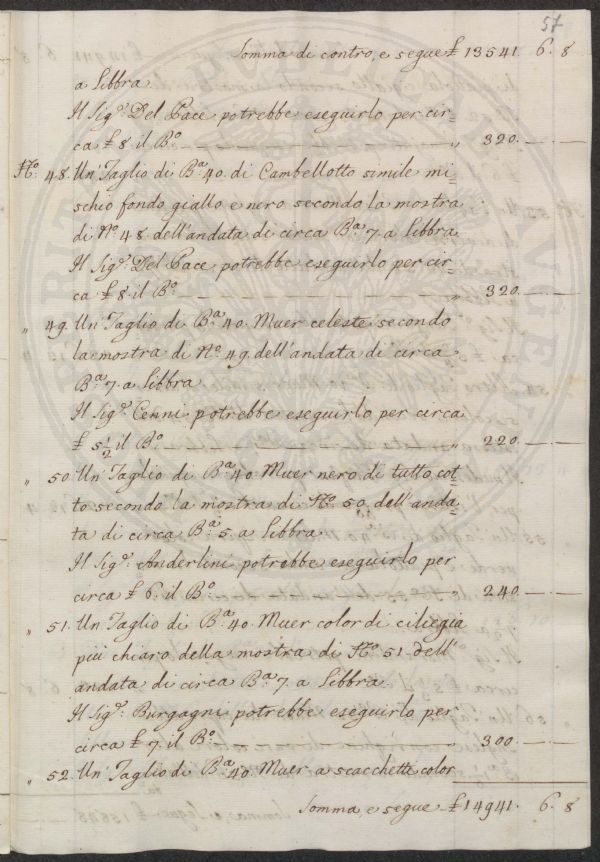 57
Somma di contro, e segue £ 13541. 6. 8
a Libbra.
Il Sig.r Del Pace potrebbe eseguirlo per cir=
ca £ 8. il B.o — — — — — " 320. — —
N.o 48. Un Taglio di B.a 40. di Cambellotto simile mi=
schio fondo giallo e nero secondo la mostra
di N.o 48. dell'andata di circa B.a 7. a Libbra.
Il Sig.r Del Pace potrebbe eseguirlo per cir=
ca £ 8. il B.o — — — — — " 320. — —
" 49. Un Taglio di B.a 40. Muer celeste secondo
la mostra di N.o 49. dell'andata di circa
B.a 7. a Libbra
Il Sig.r Cenni potrebbe eseguirlo per circa
£ 5 1/2 il B.o — — — — — " 220. — —
" 50. Un Taglio di B.a 40. Muer nero di tutto cot=
to secondo la mostra di N.o 50. dell'anda=
ta di circa B.a 5. a Libbra.
Il Sig.r Anderlini potrebbe eseguirlo per
circa £ 6. il B.o — — — — — " 240. — —
" 51. Un Taglio di B.a 40. Muer color di ciliegia
più chiaro della mostra di N.o 51. dell'
andata di circa B.a 7. a Libbra.
Il Sig.r Burgagni potrebbe eseguirlo per
circa £ 7. il B.o — — — — — " 300. — —
" 52. Un Taglio di B.a 40. Muer a scacchetti color
Somma, e segue £ 14941. 6. 8